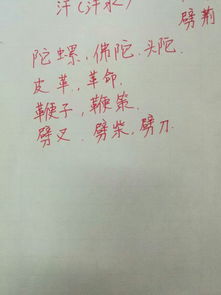 汗(汗水)
劈荆
陀螺,佛陀、头陀
皮革,革命.
鞭子,鞭策.
劈叉 劈柴,劈刀.